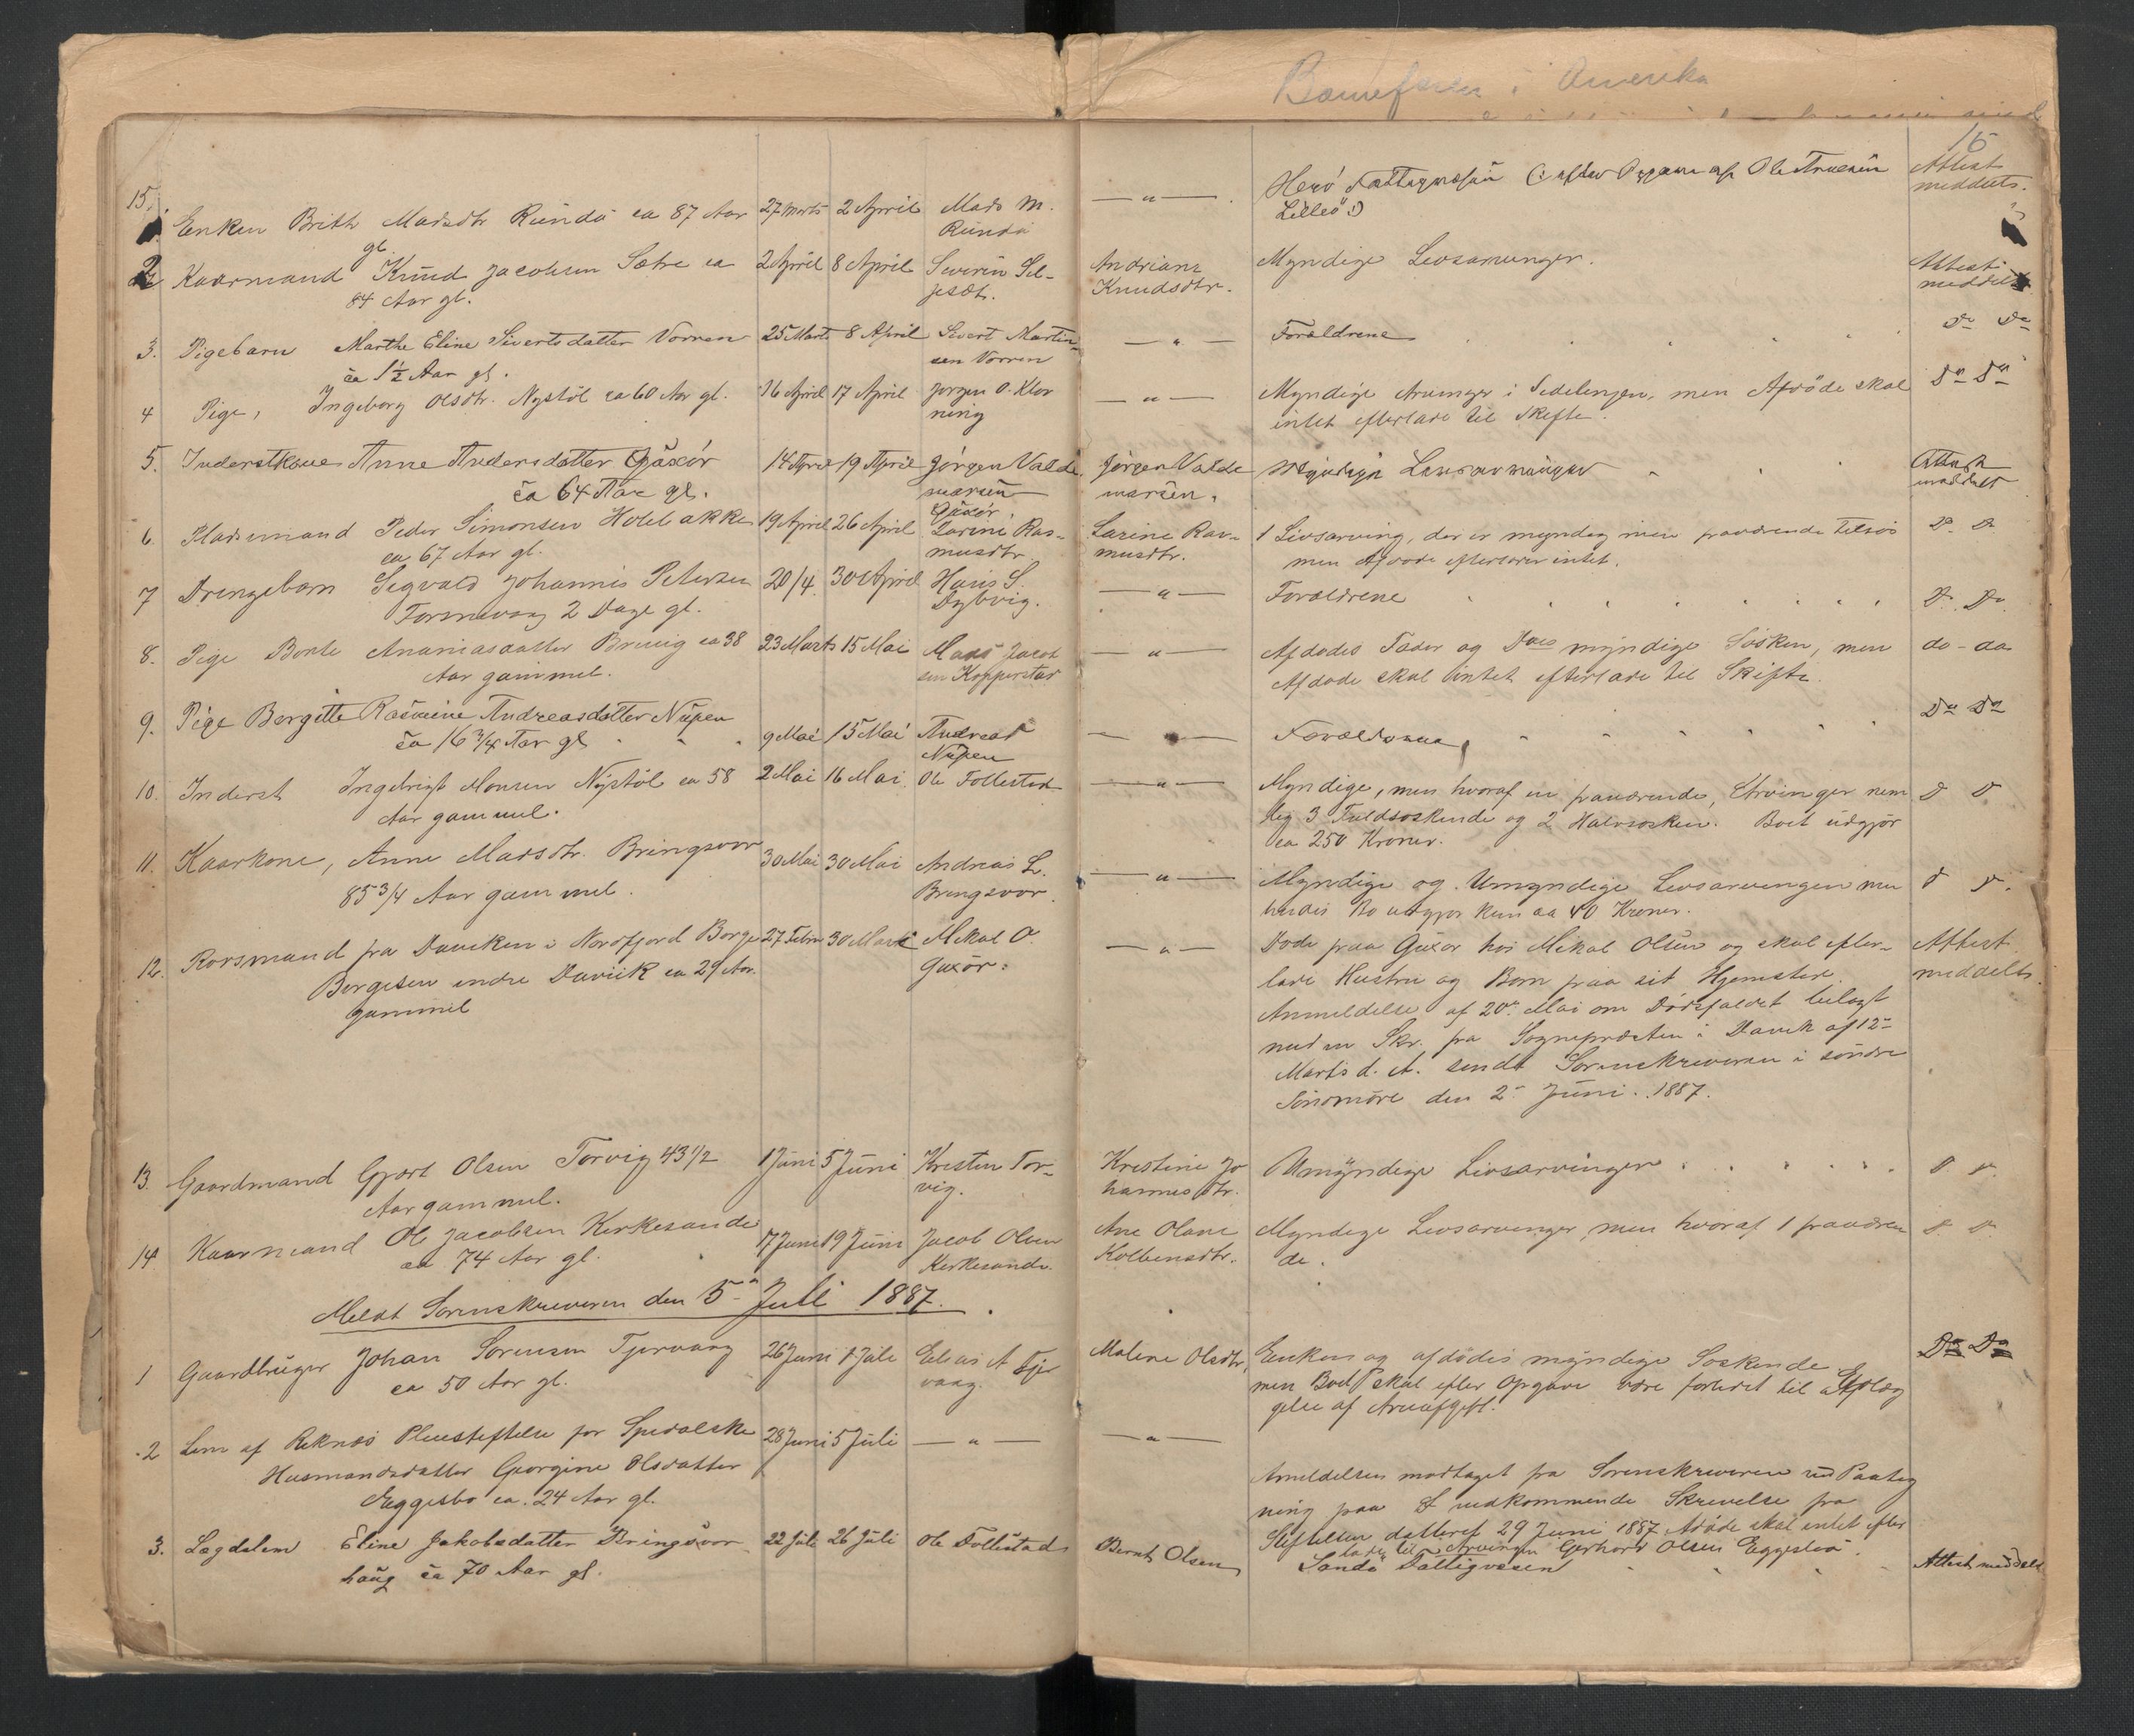 i Amerika
15.
15
Enken Brithe Madsdtr Rundö ca 87 Aar gl. 27 Marts 2 April Mads M. Rundö — " — Herö Fattigvæsen (: efter Opgave af Ole Lilleö :) Attest meddelts.
2 Kaarmand Knud Jacobsen Sætre ca 84 Aar gl. 2 April 8 April Severin Sel- Andriane Knudsdtr. Myndige Livsarvinger. Attest meddelt
3. Pigebarn Marthe Eline Sivertsdatter Vorren ca 1½ Aar gl. 25 Marts 8 April Sivert Martinsen Vorren — " — Forældrene Do Do
4 Pige, Ingeborg Olsdtr. Nystöl ca 60 Aar gl. 16 April 17 April Jørgen O. Klovning — " — Myndige Arvinger i Sidelinjen, men Afdöde skal
intet efterlade til Skifte. Do Do
5. Inderstkone Anne Andersdatter Gjüxör ca 64 Aar gl. 14 April 19 April Jörgen Valdemarsen Güxör. Jörgen Valdemarsen. Myndige Livsarvinger Attest meddelt
6. Pladsmand Peder Simonsen Holebakke ca 67 Aar gl. 19 April 26 April Larine Rasmusdtr. Larine Rasmusdtr. 1 Livsarving, der er myndig men fraværende tilsös
men Afdøde efterlader intet. D. D.
7 Drengebarn Sigvald Johannis Petersen 2 Dage gl. 20/4. 30 April Hans S. Dybvig. — " — Forældrene Do Do
8. Pige Berte Ananiasdatter Brevig ca 38 Aar gammel. 23 Marts 15 Mai Mads Jacobsen Kopperstad — " — Afdødes Fader og Does myndige Sösken, men
Afdøde skal intet efterlade til Skifte. do - do
9. Pige Bergitte Rasmine Andreasdatter Nüpen ca 16¾ Aar gl 9 Mai 15 Mai Andreas Nüpen — " — Forældrene, Do Do
10. Inderst Ingebrigt Monsen Nystöl ca 58 Aar gammel. 2 Mai 16 Mai. Ole Follestad — " — Myndige, men hvoraf en fraværende, Arvinger nem
lig 3 Fuldsøskende og 2 Halvsøsken. Boet udgjör
ca 250 Kroner. D D
11. Kaarkone, Anne Madsdtr. Bringsvor 85¾ Aar gammel. 30 Mai 30 Mai Andreas L. Bringsvor. — " — Myndige og Umyndige Livsarvinger men
hendes Bo udgjør kun ca 40 Kroner. D D.
12. Rorsmand fra Daviken i Nordfjord Børge Børgesen indre Daviik ca 29 Aar. gammel 27 Febr 30 Marts Mikal O. Güxör. — " — Døde paa Güxør hos Mikal Olsen og skal efter-
lade Hustru og Børn paa sit Hjemsted.
Anmeldelse af 20de Mai om Dødsfaldet bilagt
med en Skr. fra Sognepræsten i Davik af 12te
Marts d. A. sendt Sorenskriveren i söndre
Söndmöre den 2den Juni 1887. Attest meddelts
13. Gaardmand Gjert Olsen Torvig 43½ Aar gammel. 1 Juni 5 Juni Kristen Torvig. Kristine Johannesdtr. Umyndige Livsarvinger D. D.
14 Kaarmand Ole Jacobsen Kirkesande ca 74 Aar gl. 17 Juni 19 Juni Jacob Olsen Kirkesande. Ane Olane Kolbensdtr. Myndige Livsarvinger, men hvoraf 1 fraværen
de. D. D.
Meldt Sorenskriveren den 5te Juli 1887.
1 Gaardbruger Johan Sørensen Tjervaag ca 50 Aar gl. 26 Juni 1 Juli Elias A Tjervaag. Malene Olsdtr, Enken og afdødes myndige Søskende
men Boet skal efter Opgave være forlidet til Erlæg
gelse af Arveafgift. Do Do
2 Lem af Reknæs Pleiestiftelse for Spedalske
Husmandsdatter Georgine Olsdatter
Eggesbø ca. 24 Aar gl. 28 Juni 5 Juli — " — — " — Anmeldelsen modtaget fra Sorenskriveren ved Paateg
ning paa vedkommende Skrivelse fra
Stiftelsen datteret 29 Juni 1887. Afdøde skal intet efter
lade til Arvingen Gerhard Olsen Eggesbø.
3. Lægdslem Eline Jakobsdatter Bringsvor
haug ca 70 Aar gl. 22 Juli 26 Juli Ole Follestad Bernt Olsen Sandö Fattigvæsen Attest meddelt